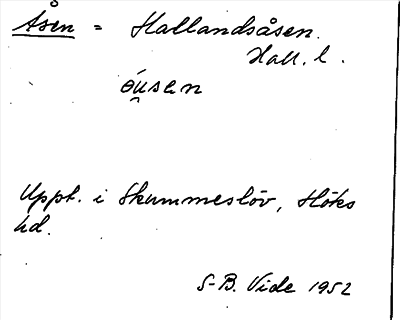 Åsen = Hallandsåsen.
Hall. l.
óu̯sen
Uppt. i Skummeslöv, Höks
hd.
S-B. Vide 1952